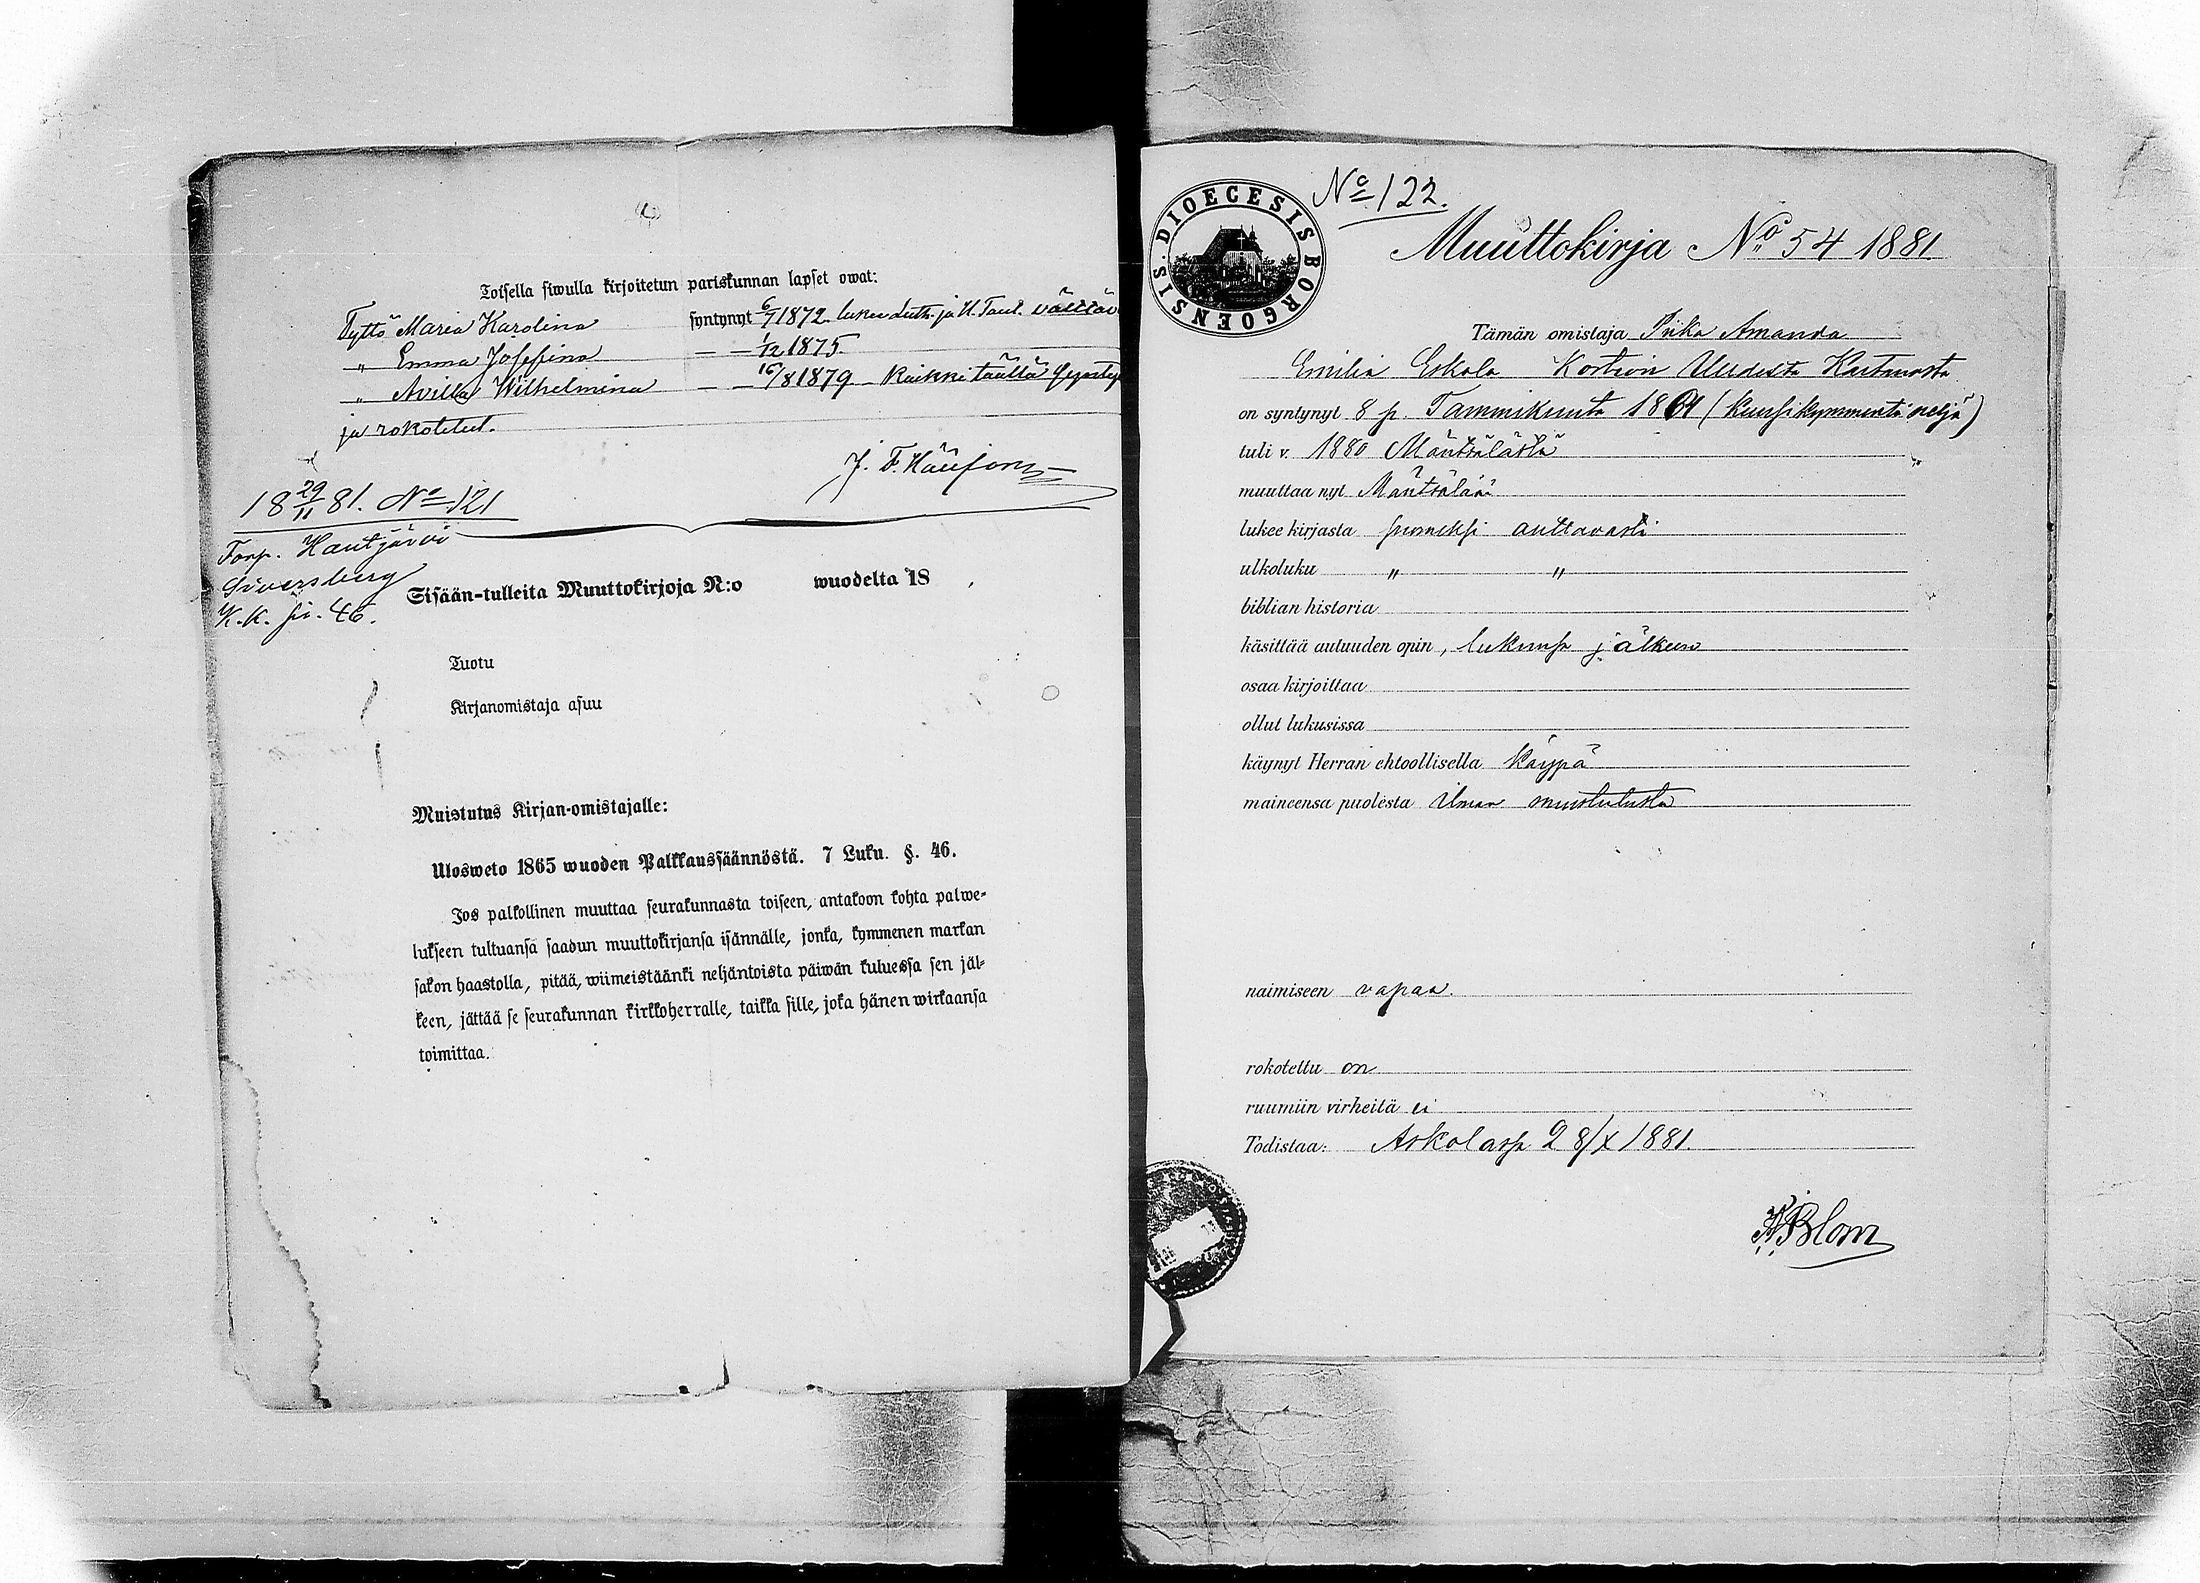 Toisella siwulla kirjoitetun pariskunnan lapset owat:
Tyttö Maria Karolina syntynyt 6/7 1872. lukee
„ Emma Josefina — — 1/12 1875.
„ Wilhelmina — — 16/8 1879 Kaikki täällä
ja rokotetut.
J. F.
18 29/11 81. No 121
Torp. Hautjärvi
Siversberg
K.K. si. 46.
Sisään-tulleita Muuttokirjoja N:o wuodelta 18
Tuotu
Kirjanomistaja asuu
Muistutus Kirjan-omistajalle:
Ulosweto 1865 wuoden Palkkaussäännöstä. 7 Luku. §. 46.
Jos palkollinen muuttaa seurakunnasta toiseen, antakoon kohta palwe-
lukseen tultuansa saadun muuttokirjansa isännälle, jonka, kymmenen markan
sakon haastolla, pitää, wiimeistäänki neljäntoista päiwän kuluessa sen jäl-
keen, jättää se seurakunnan kirkkoherralle, taikka sille, joka hänen wirkaansa
toimittaa.
SIS. DIOECESIS BORGOENSIS
No 122.
Muuttokirja No 54 1881.
Tämän omistaja Piika Amanda
Emilia Eskola Uudesta
on syntynyt 8 p. Tammikuuta 1864 (kuusikymmentä neljä)
tuli v. 1880 Mäntsälästä
muuttaa nyt Mäntsälään
lukee kirjasta auttavasti
ulkoluku „ „
biblian historia
käsittää autuuden opin, lukunsa jälkeen
osaa kirjoittaa
ollut lukusissa
käynyt Herran ehtoollisella käypä
maineensa puolesta ilman muistutusta
naimiseen vapaa.
rokotettu on
ruumiin virheitä ei
Todistaa: Askolassa 28/X 1881.
Blom